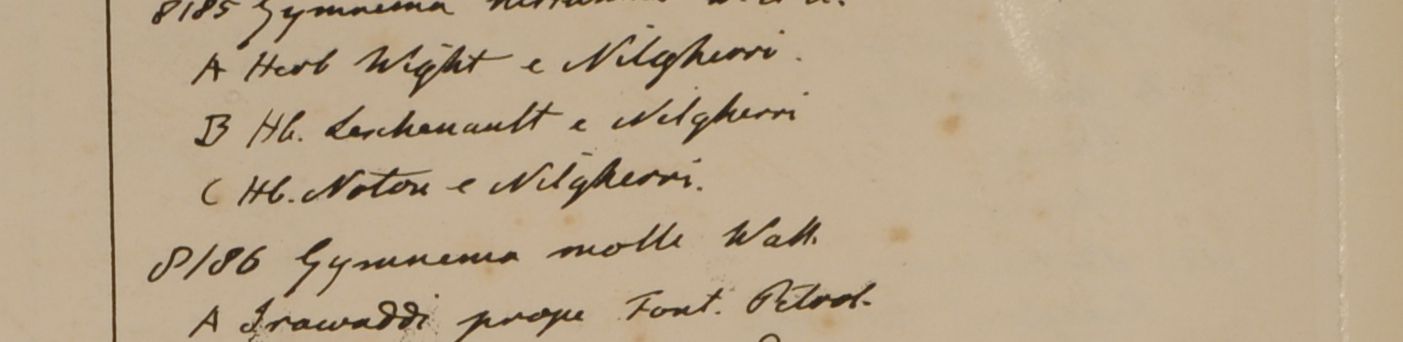 8185 Gymnema
A Herb Wight e Nilgherri.
B Hb. Leschenault e Nilgherri
C Hb. Noton e Nilgherri.
8186 Gymnema molle Wall.
A Irawaddi prope Font. Petrol.